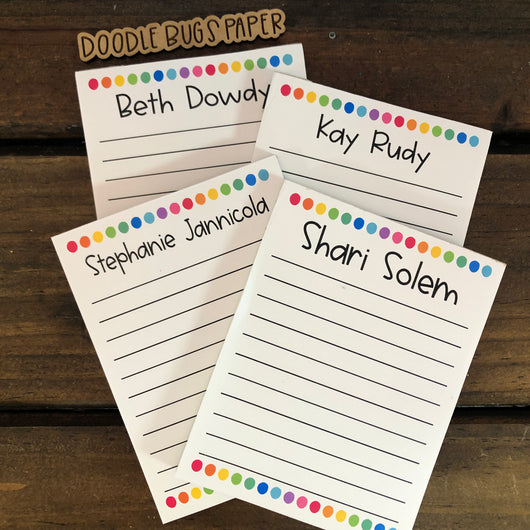 DOODLE BUGS PAPER
Beth Dowdy
Kay Rudy
Stephanie Jannicola
Shari Solem